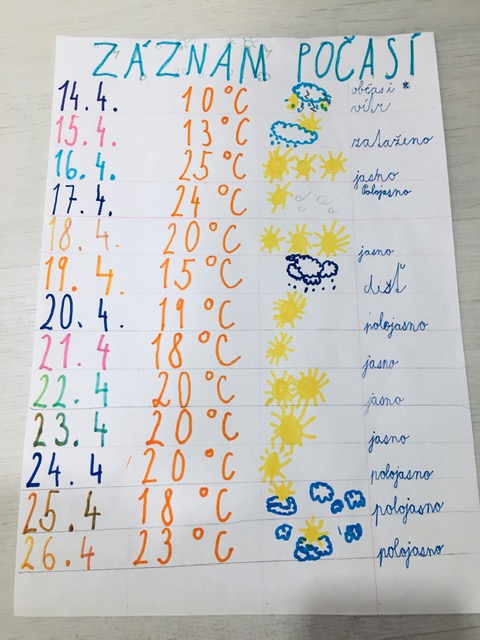 ZÁZNAM POČASÍ
14.4. 10°C občasí
vítr
15.4. 13°C zataženo
16.4. 25°C jasno
17.4. 24°C Polojasno
18.4. 20°C jasno
19.4. 15°C déšť
20.4. 19°C polojasno
21.4 18°C jasno
22.4 20°C jasno
23.4 20°C jasno
24.4 20°C polojasno
25.4 18°C polojasno
26.4 23°C polojasno